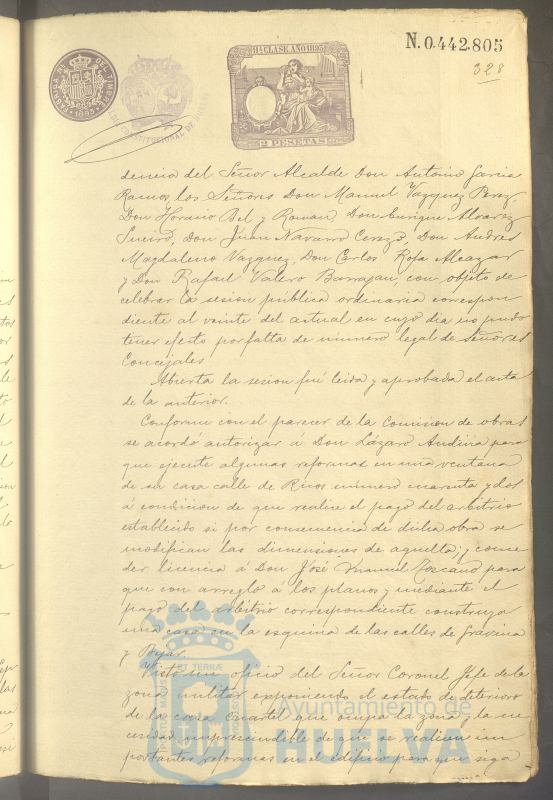 N.0.442.805
328
11ª CLASE AÑO 1895
2 PESETAS
1895
dencia del Señor Alcalde Don Antonio Garcia
Ramos, los Señores Don Manuel Vazquez Perez,
Don Horacio Bel y Roman, Don Enrique Alvarez
Sueiro, Don Juan Navarro Cerezo, Don Andres
Magdaleno Vazquez, Don Carlos Rofa Alcazar
y Don Rafael Valero Barragan, con objeto de
celebrar la sesion publica ordinaria correspon
diente al veinte del actual en cuyo dia no pudo
tener efecto por falta de numero legal de Señores
Concejales
Abierta la sesion fué leida y aprobada el acta
de la anterior.
Conforme con el parecer de la Comision de obras
se acordo autorizar á Don Lázaro para
que ejecute algunas reformas en una ventana
de su casa calle de Ricos numero cuarenta y dos
á condicion de que realice el pago del arbitrio
establecido si por consecuencia de dicha obra se
modifican las dimensiones de aquella; y conce
der licencia á Don José Manuel Toscano para
que con arreglo á los planos y mediante el
pago del arbitrio correspondiente construya
una casa en la esquina de las calles de Gravina
y Bejar.
Visto un oficio del Señor Coronel Jefe de la
zona militar exponiendo el estado de deterioro
de la casa Cuartel que ocupa la zona y la ne
cesidad imprescindible de que se realicen im
portantes reformas en el edificio para que siga
Ayuntamiento de
HUELVA